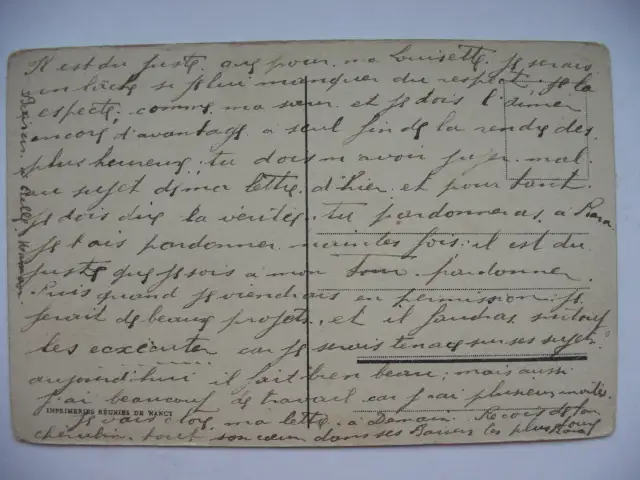 Il est du juste, que pour ma Louisette, je serais
un lâche si je lui manquer du respect, je la
especte, comme ma sœur et je dois l'aimer
encore d'avantage, a seul fin de la rendre des
plus heureux; tu dois m'avoir juger mal
au sujet de ma lettre d'hier et pour tant
je dois dire la vérité; tu pardonneras, à
je t'ais pardonner maintes fois; il est du
juste que je sois a mon Tour, pardonner
Puis quand je viendrais en permission, je
ferait de beaux projets, et il faudras surtout
les ecxécuter car je serais tenace sur ses sujets
aujourd'hui il fait bien beau; mais aussi
j'ai beaucoup de travail car j'ai plusieurs
Je vais clore ma lettre, a Demain. Recois de ton
cherubin, tout son cœur dans ses Baisers les plus doux
IMPRIMERIES RÉUNIES DE NANCY